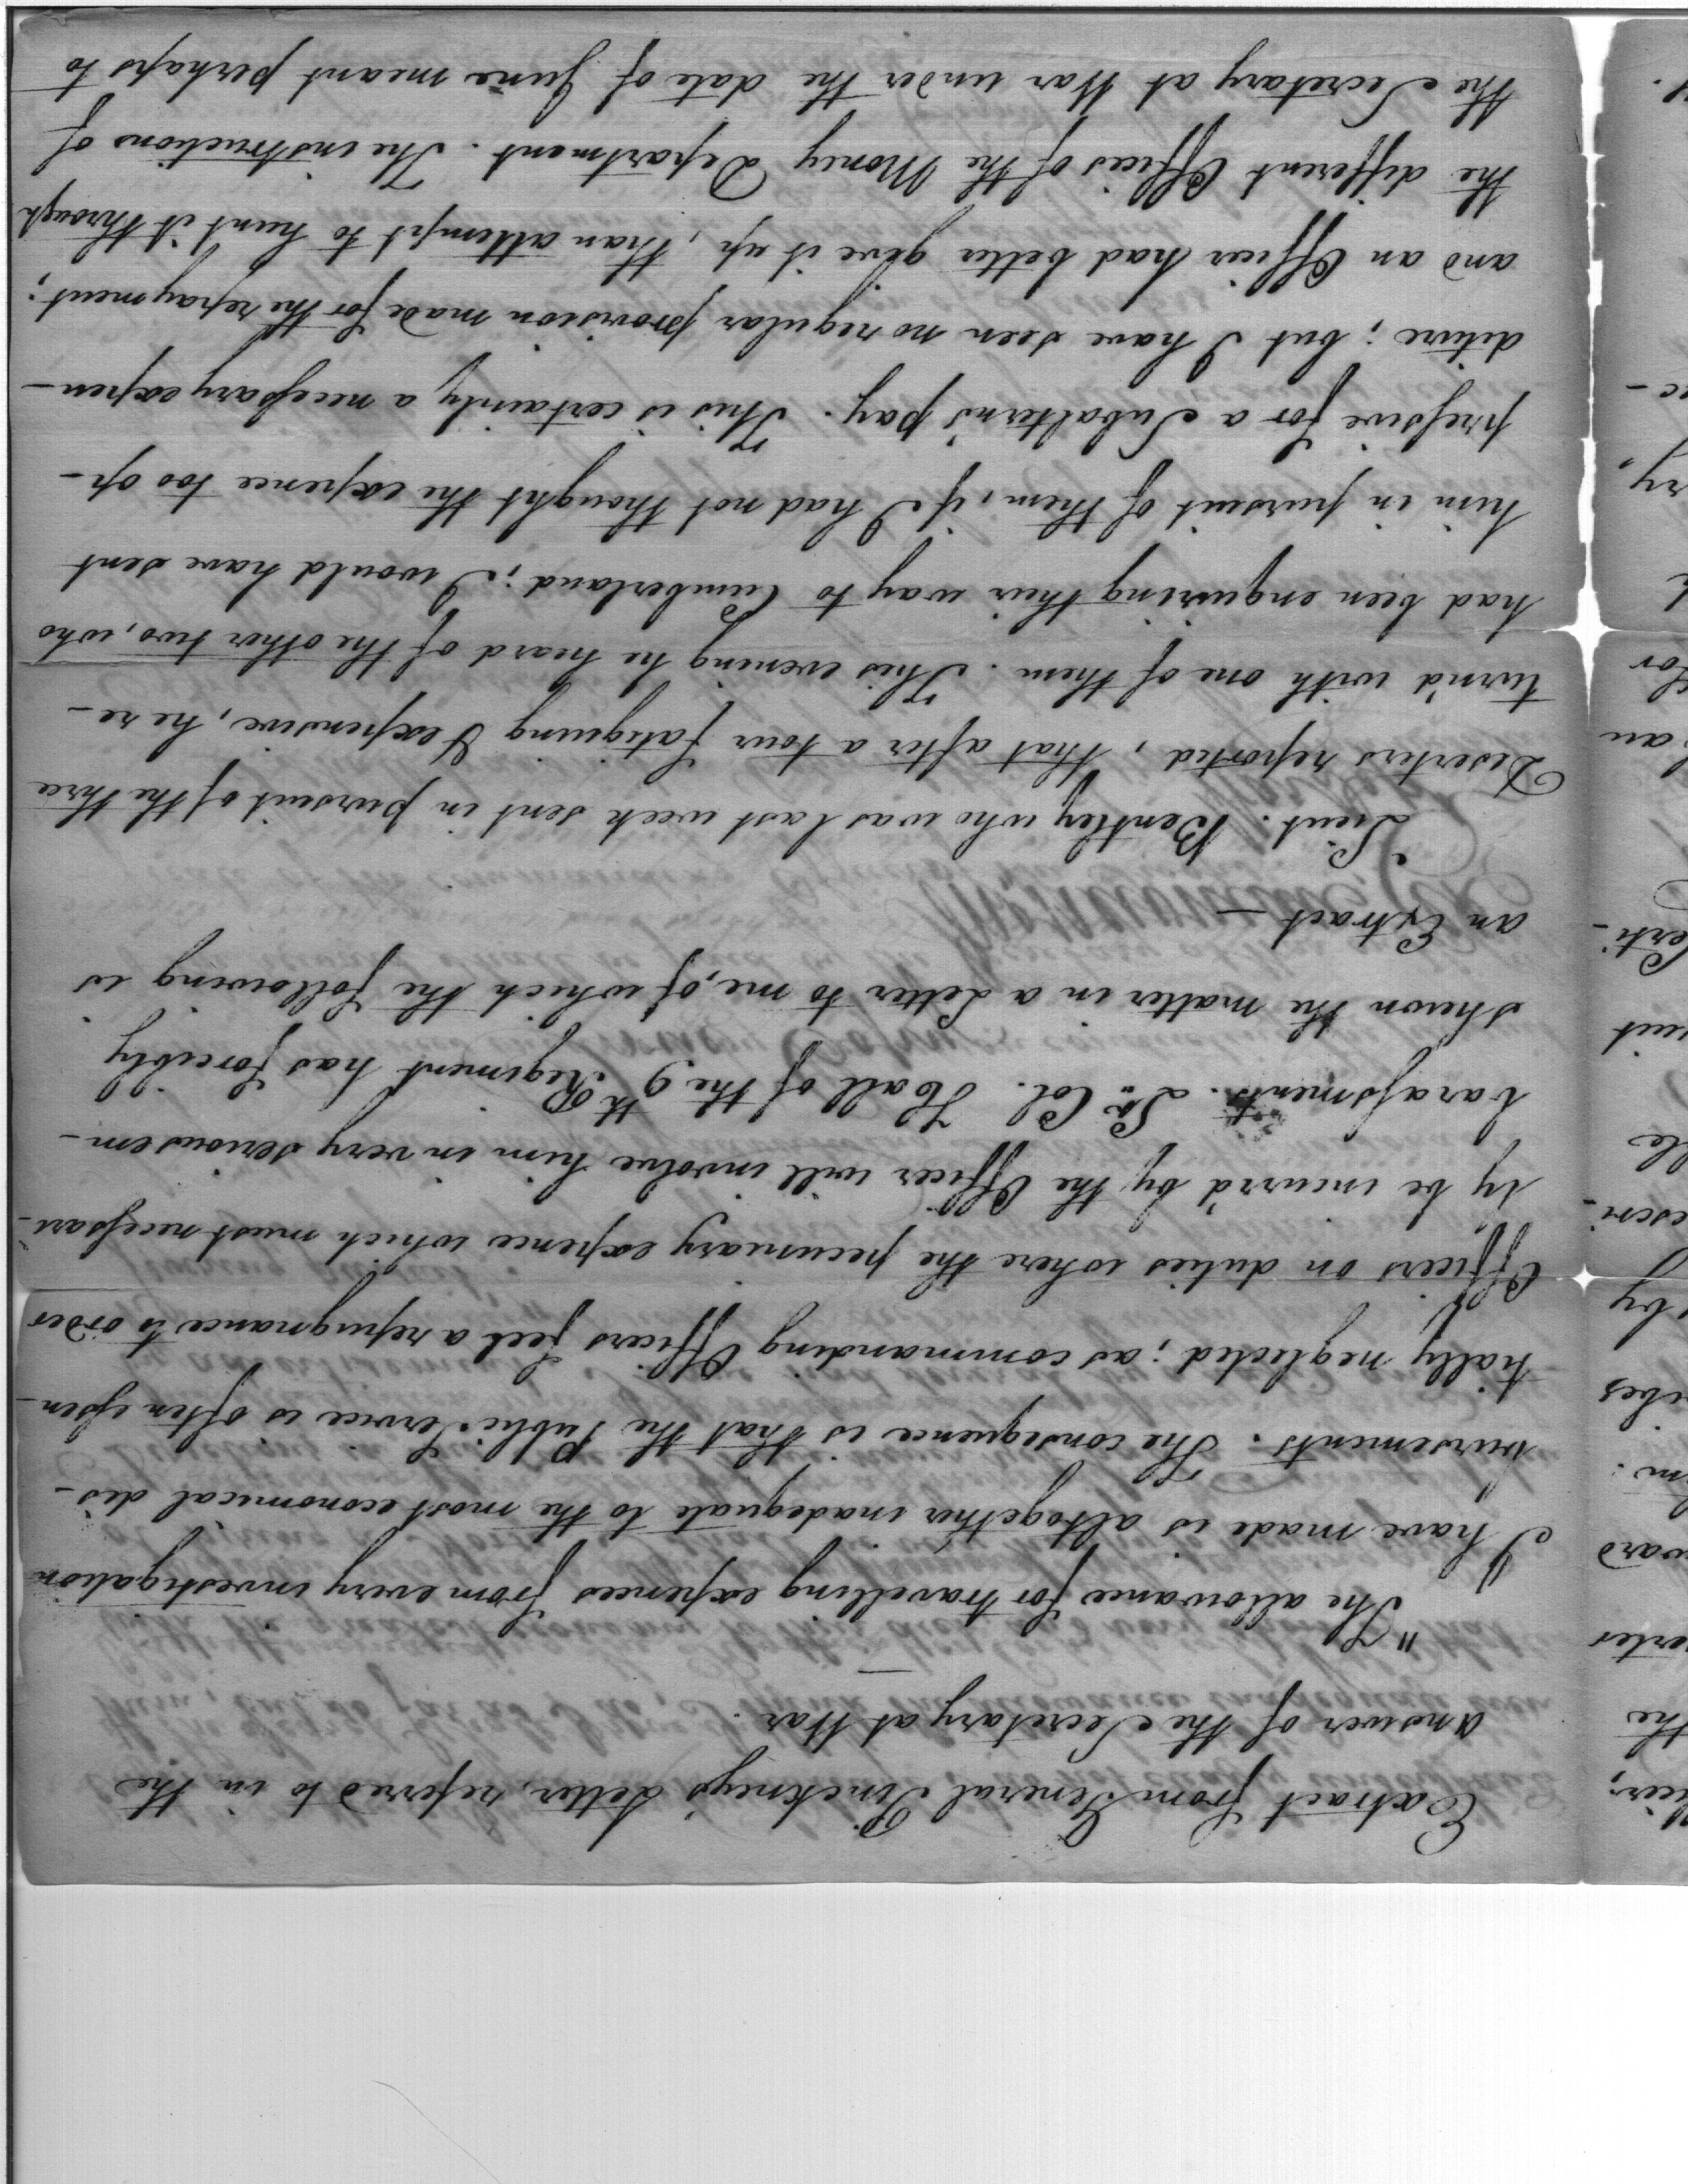 Extract from General Pinckney's Letter, refered to in the
Answer of the Secretary at War.
"The allowance for travelling expences from every investigation
I have made is altogether inadequate to the most economical dis-
bursements. The consequence is that the Public Service is often essen-
tially neglected; as commanding Officers feel a repugnance to order
Officers on duties where the pecuniary expence which must necessari-
ly be incurr'd by the Officer will involve him in very serious em-
barassments. Lt. Col. Hall of the 9th Regiment has forcibly
shewn the matter in a Letter to me, of which the following is
an Extract —
"Lieut. Bentley who was last week sent in pursuit of the three
Deserters reported, that after a tour fatiguing & expensive, he re-
turn'd with one of them. This evening he heard of the other two, who
had been enquiring their way to Cumberland; I would have sent
him in pursuit of them, if I had not thought the expence too op-
pressive for a Subaltern's pay. This is certainly a necessary expen-
diture; but I have seen no regular provision made for the repayment;
and an Officer had better give it up, than attempt to hunt it through
the different Offices of the Money Department. The instructions of
the Secretary at War under the date of June meant perhaps to